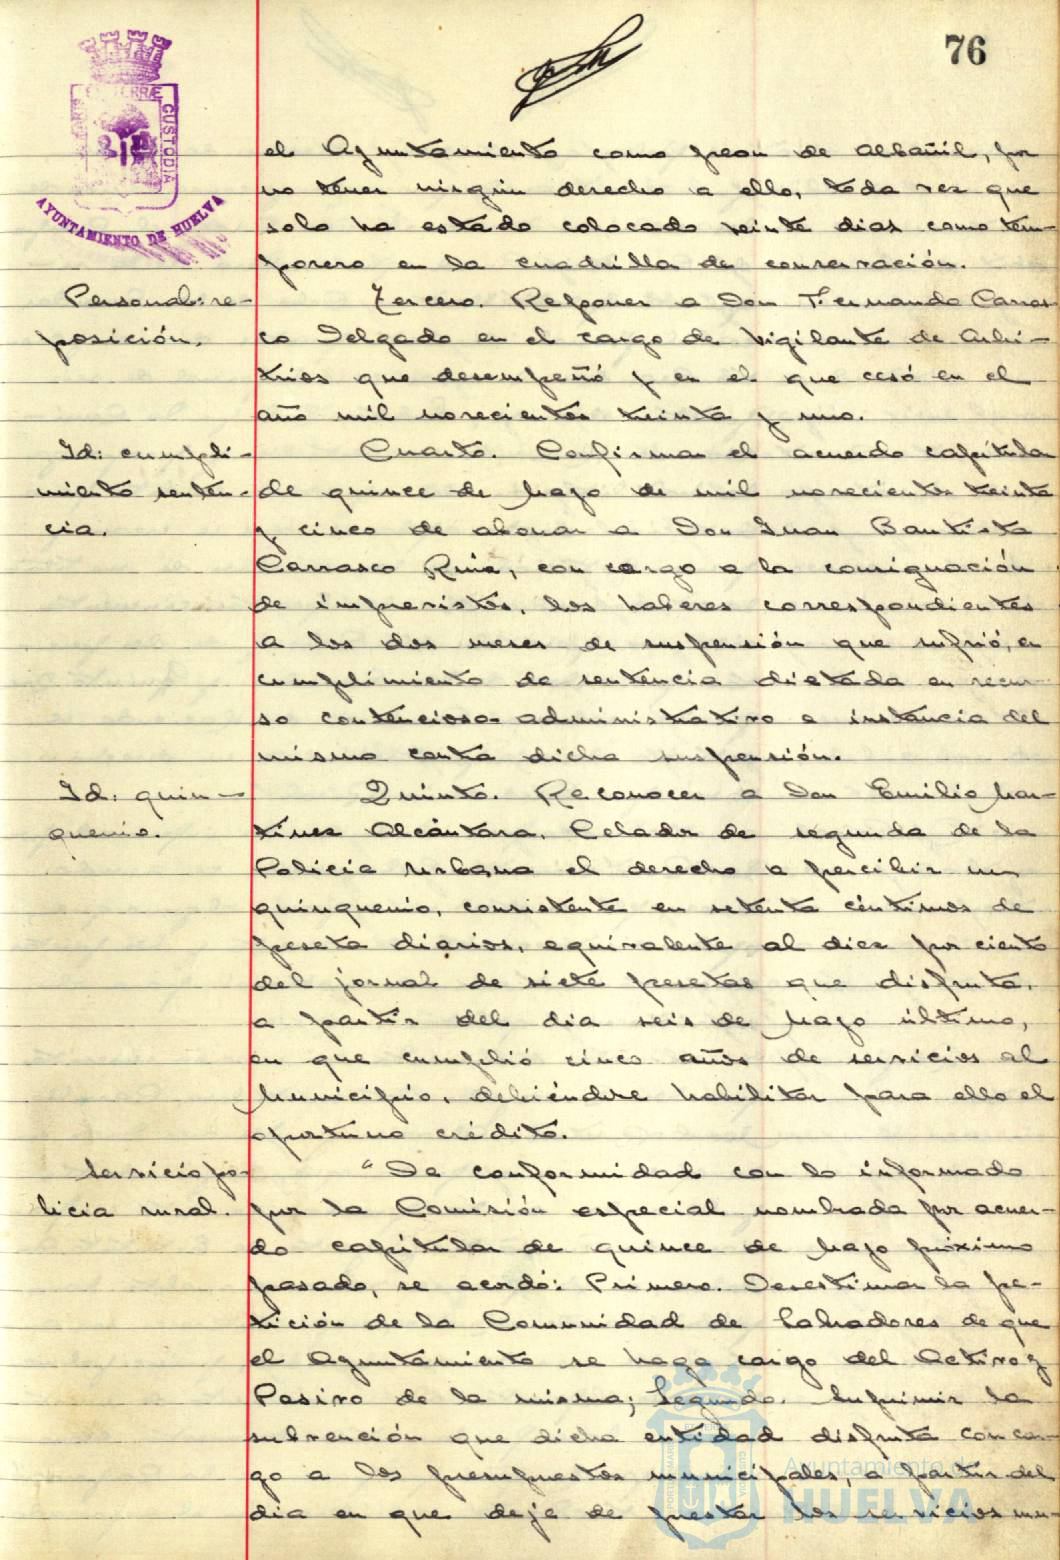 76
PORTUS MARIS ET TERRÆ CUSTODIA
AYUNTAMIENTO DE HUELVA
el Ayuntamiento como peon de albañil, por
no tener ningún derecho a ello, toda vez que
solo ha estado colocado veinte dias como tem-
porero en la cuadrilla de conservación.
Personal: re-
posición.
Tercero. Reponer a Don Fernando Carras
co Delgado en el cargo de Vigilante de Arbi-
trios que desempeñó y en el que cesó en el
año mil novecientos treinta y uno.
Id: cumpli-
miento senten-
cia.
Cuarto. Confirmar el acuerdo capitular
de quince de Mayo de mil novecientos treinta
y cinco de abonar a Don Juan Bautista
Carrasco Ruiz, con cargo a la consignación
de imprevistos, los haberes correspondientes
a los dos meses de suspensión que sufrió, en
cumplimiento de sentencia dictada en recur-
so contencioso-administrativo a instancia del
mismo contra dicha suspensión.
Id: quin-
quenio.
Quinto. Reconocer a Don Emilio Mar-
tínez Alcántara, Celador de segunda de la
Policia urbana el derecho a percibir un
quinquenio, consistente en setenta céntimos de
peseta diarios, equivalente al diez por ciento
del jornal de siete pesetas que disfruta,
a partir del dia seis de Mayo último,
en que cumplió cinco años de servicios al
Municipio, debiéndose habilitar para ello el
oportuno crédito.
Servicio po-
licia rural.
"De conformidad con lo informado
por la Comisión especial nombrada por acuer-
do capitular de quince de Mayo próximo
pasado, se acordó: Primero. Desestimar la pe-
tición de la Comunidad de Labradores de que
el Ayuntamiento se haga cargo del Activo y
Pasivo de la misma; Segundo. Suprimir la
subvención que dicha entidad disfruta con car-
go a los presupuestos municipales, a partir del
dia en que deje de prestar los servicios mu-
Ayuntamiento de
HUELVA